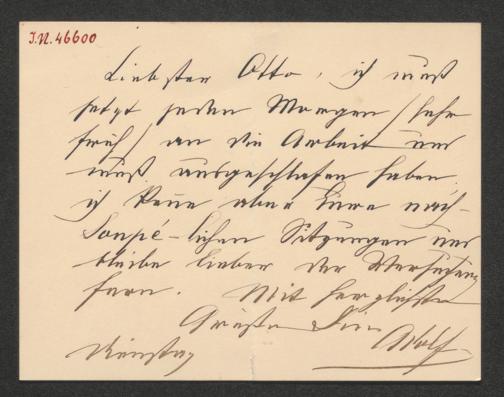 J.N. 46600
Liebster Otto, ich muß
jetzt jeden Morgen /sehr
früh/ an die Arbeit und
muß ausgeschlafen haben.
ich kenne aber Eure nach-
Soupé-lichen Sitzungen und
bleibe lieber der Versuchung
fern. Mit herzlichsten
Grüßen Dein
Adolf
Dienstag